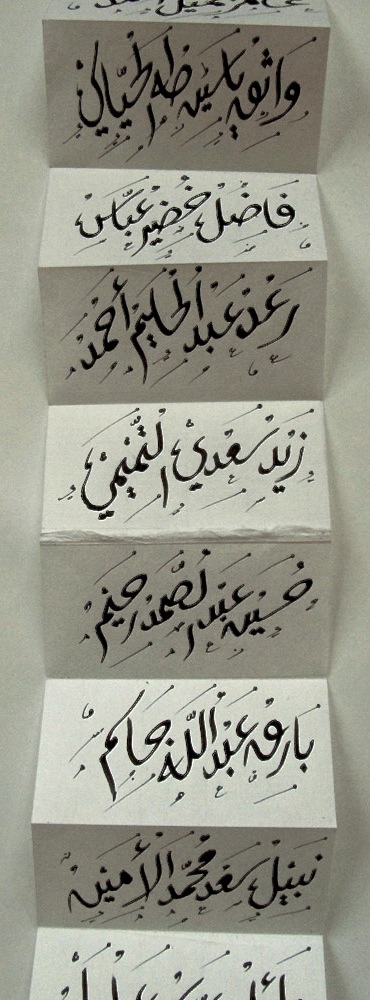 واثق ياسين طه الحيّاني
فاضل خضير عبّاس
رغد عبد الحليم أحمد
زيد سعدي التميمي
حسين عبد الصمد رحيم
بارق عبد اللّه حاكم
نبيل سعد محمّد الأمين